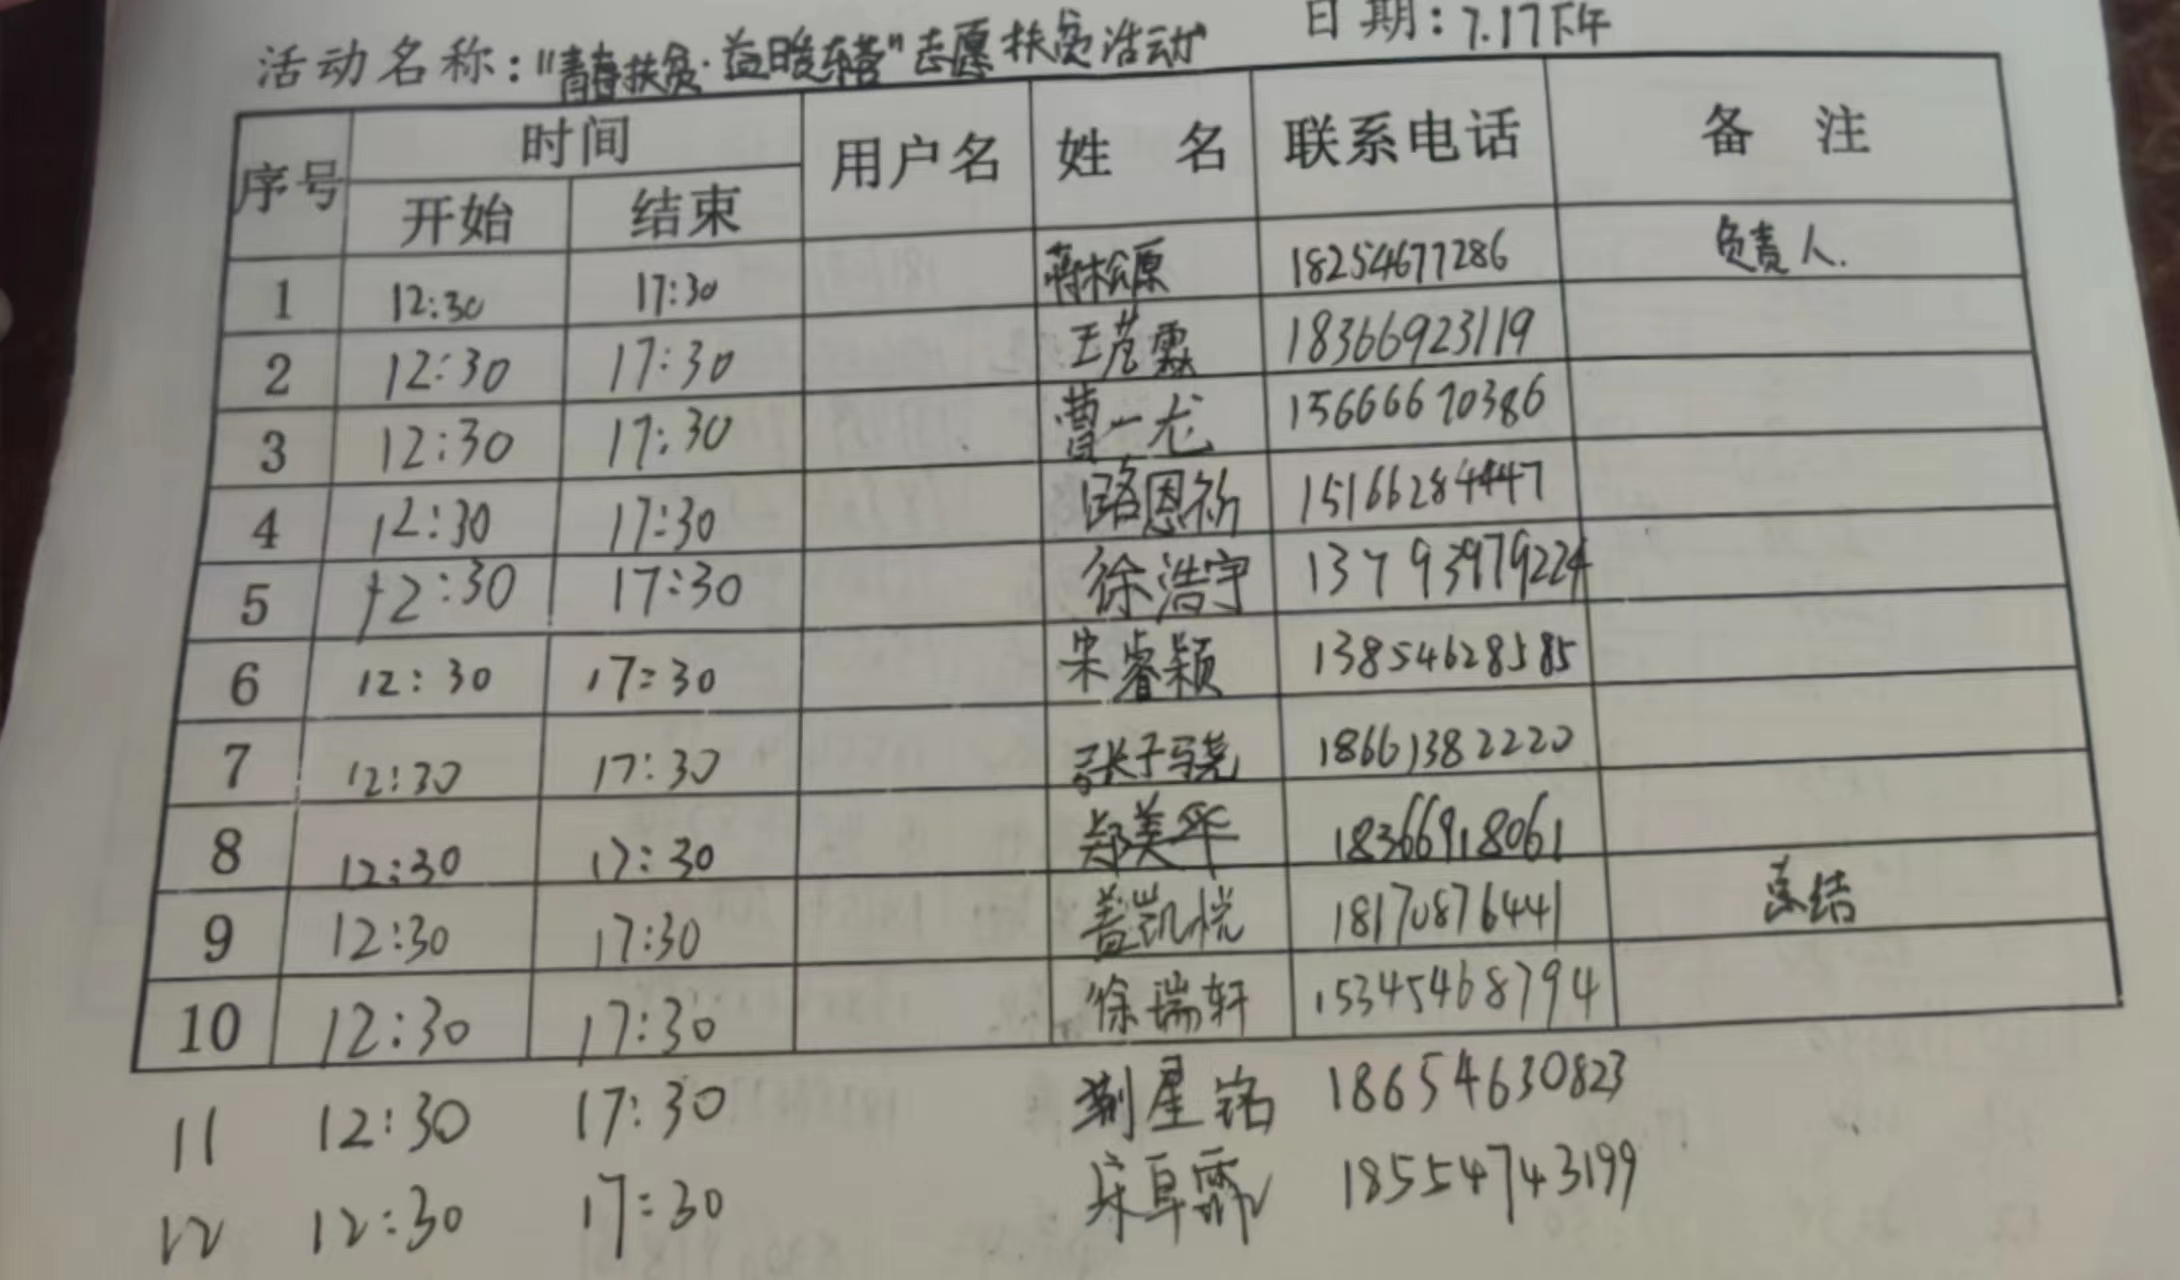 活动名称:"青春扶贫·益暖东营"志愿扶贫活动 日期:7.17下午
序号 时间 用户名 姓 名 联系电话 备 注
开始 结束
1 12:30 17:30 蒋松原 18254677286 负责人.
2 12:30 17:30 王芑霖 18366923119
3 12:30 17:30 曹一尤 15666670386
4 12:30 17:30 路恩祈 15166284447
5 12:30 17:30 徐浩宇 13793979224
6 12:30 17:30 宋睿颖 13854628585
7 12:30 17:30 张子骁 18661382220
8 12:30 17:30 郑美华 18366918061
9 12:30 17:30 盖凯悦 18170876441 总结
10 12:30 17:30 徐瑞轩 15345468794
11 12:30 17:30 星铭 18654630823
12 12:30 17:30 18554743199